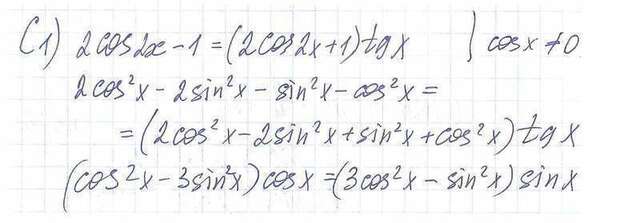 C1) 2cos2x-1=(2cos2x+1)tgx | cosx≠0
2cos²x-2sin²x-sin²x-cos²x=
=(2cos²x-2sin²x+sin²x+cos²x)tgx
(cos²x-3sin²x)cosx=(3cos²x-sin²x)sinx